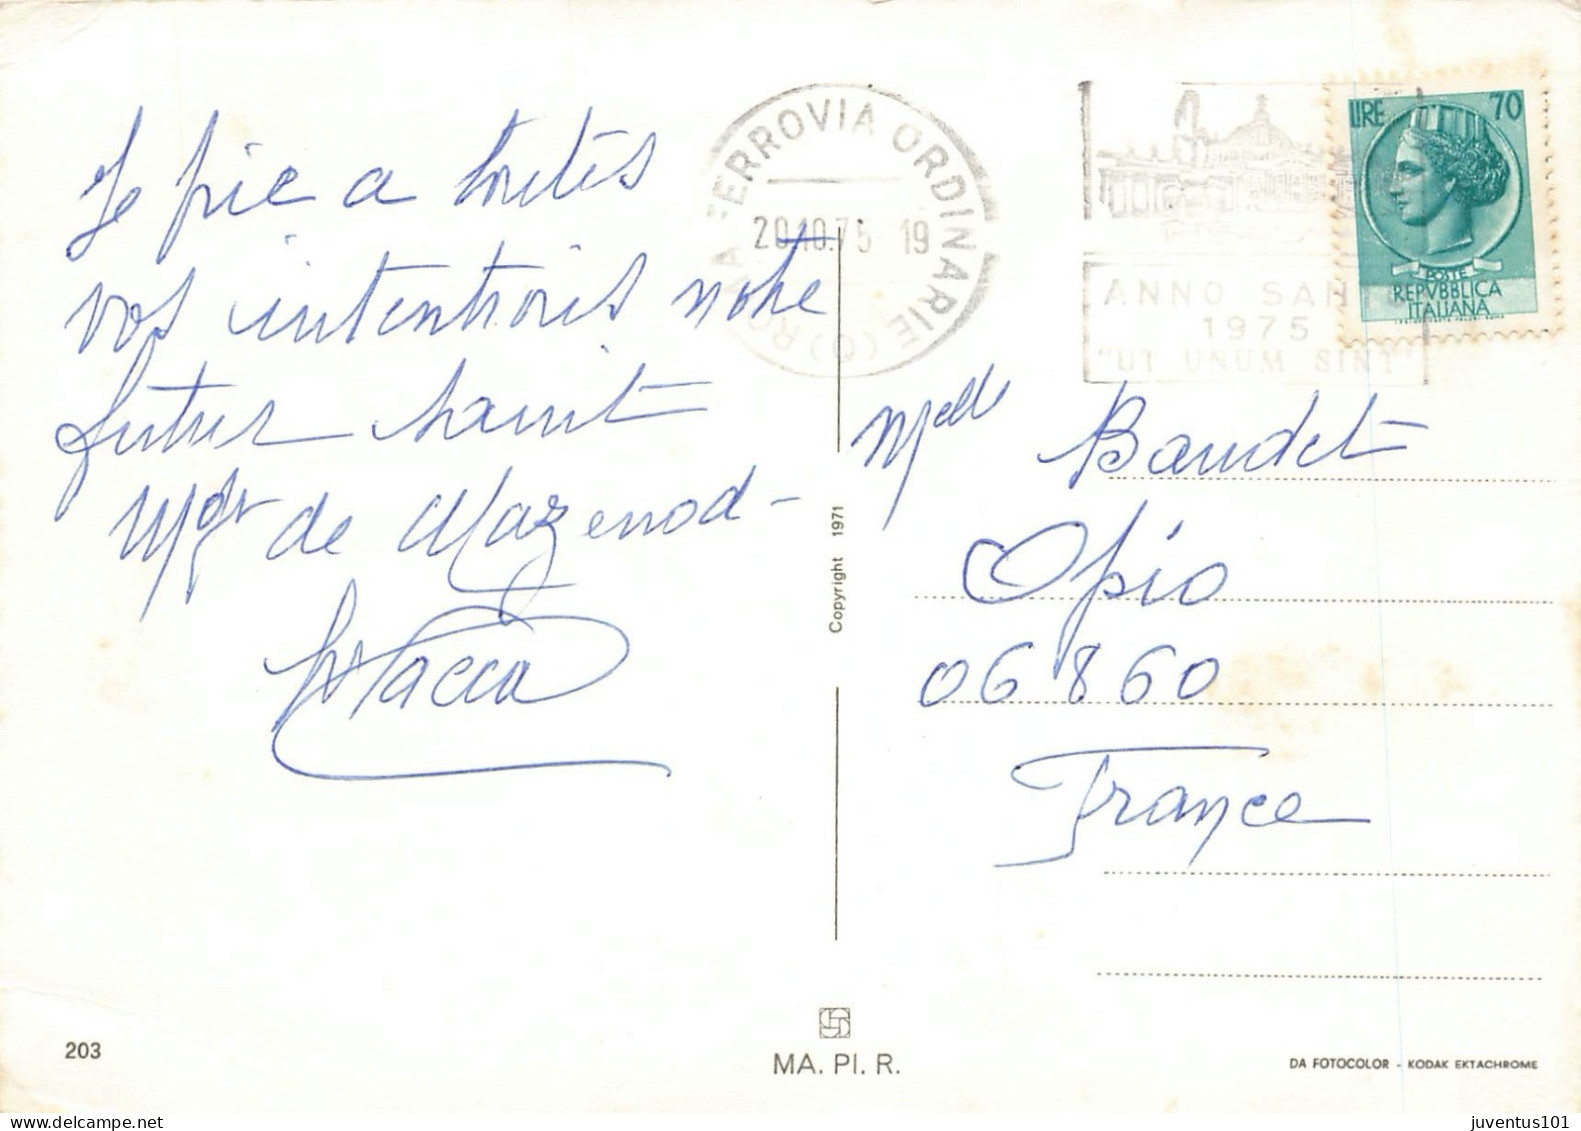 Je prie a toutes
vos intentions notre
futur saint
Mgr de Mazenod -
ROMA FERROVIA ORDINARIE (O)
20.10.75 19
ANNO SANTO
1975
"UT UNUM SINT"
LIRE 70
POSTE
REPVBBLICA
ITALIANA
Melle Baudet
Opio
06860
France
Copyright 1971
203
MA. PI. R.
DA FOTOCOLOR - KODAK EKTACHROME
juventus101